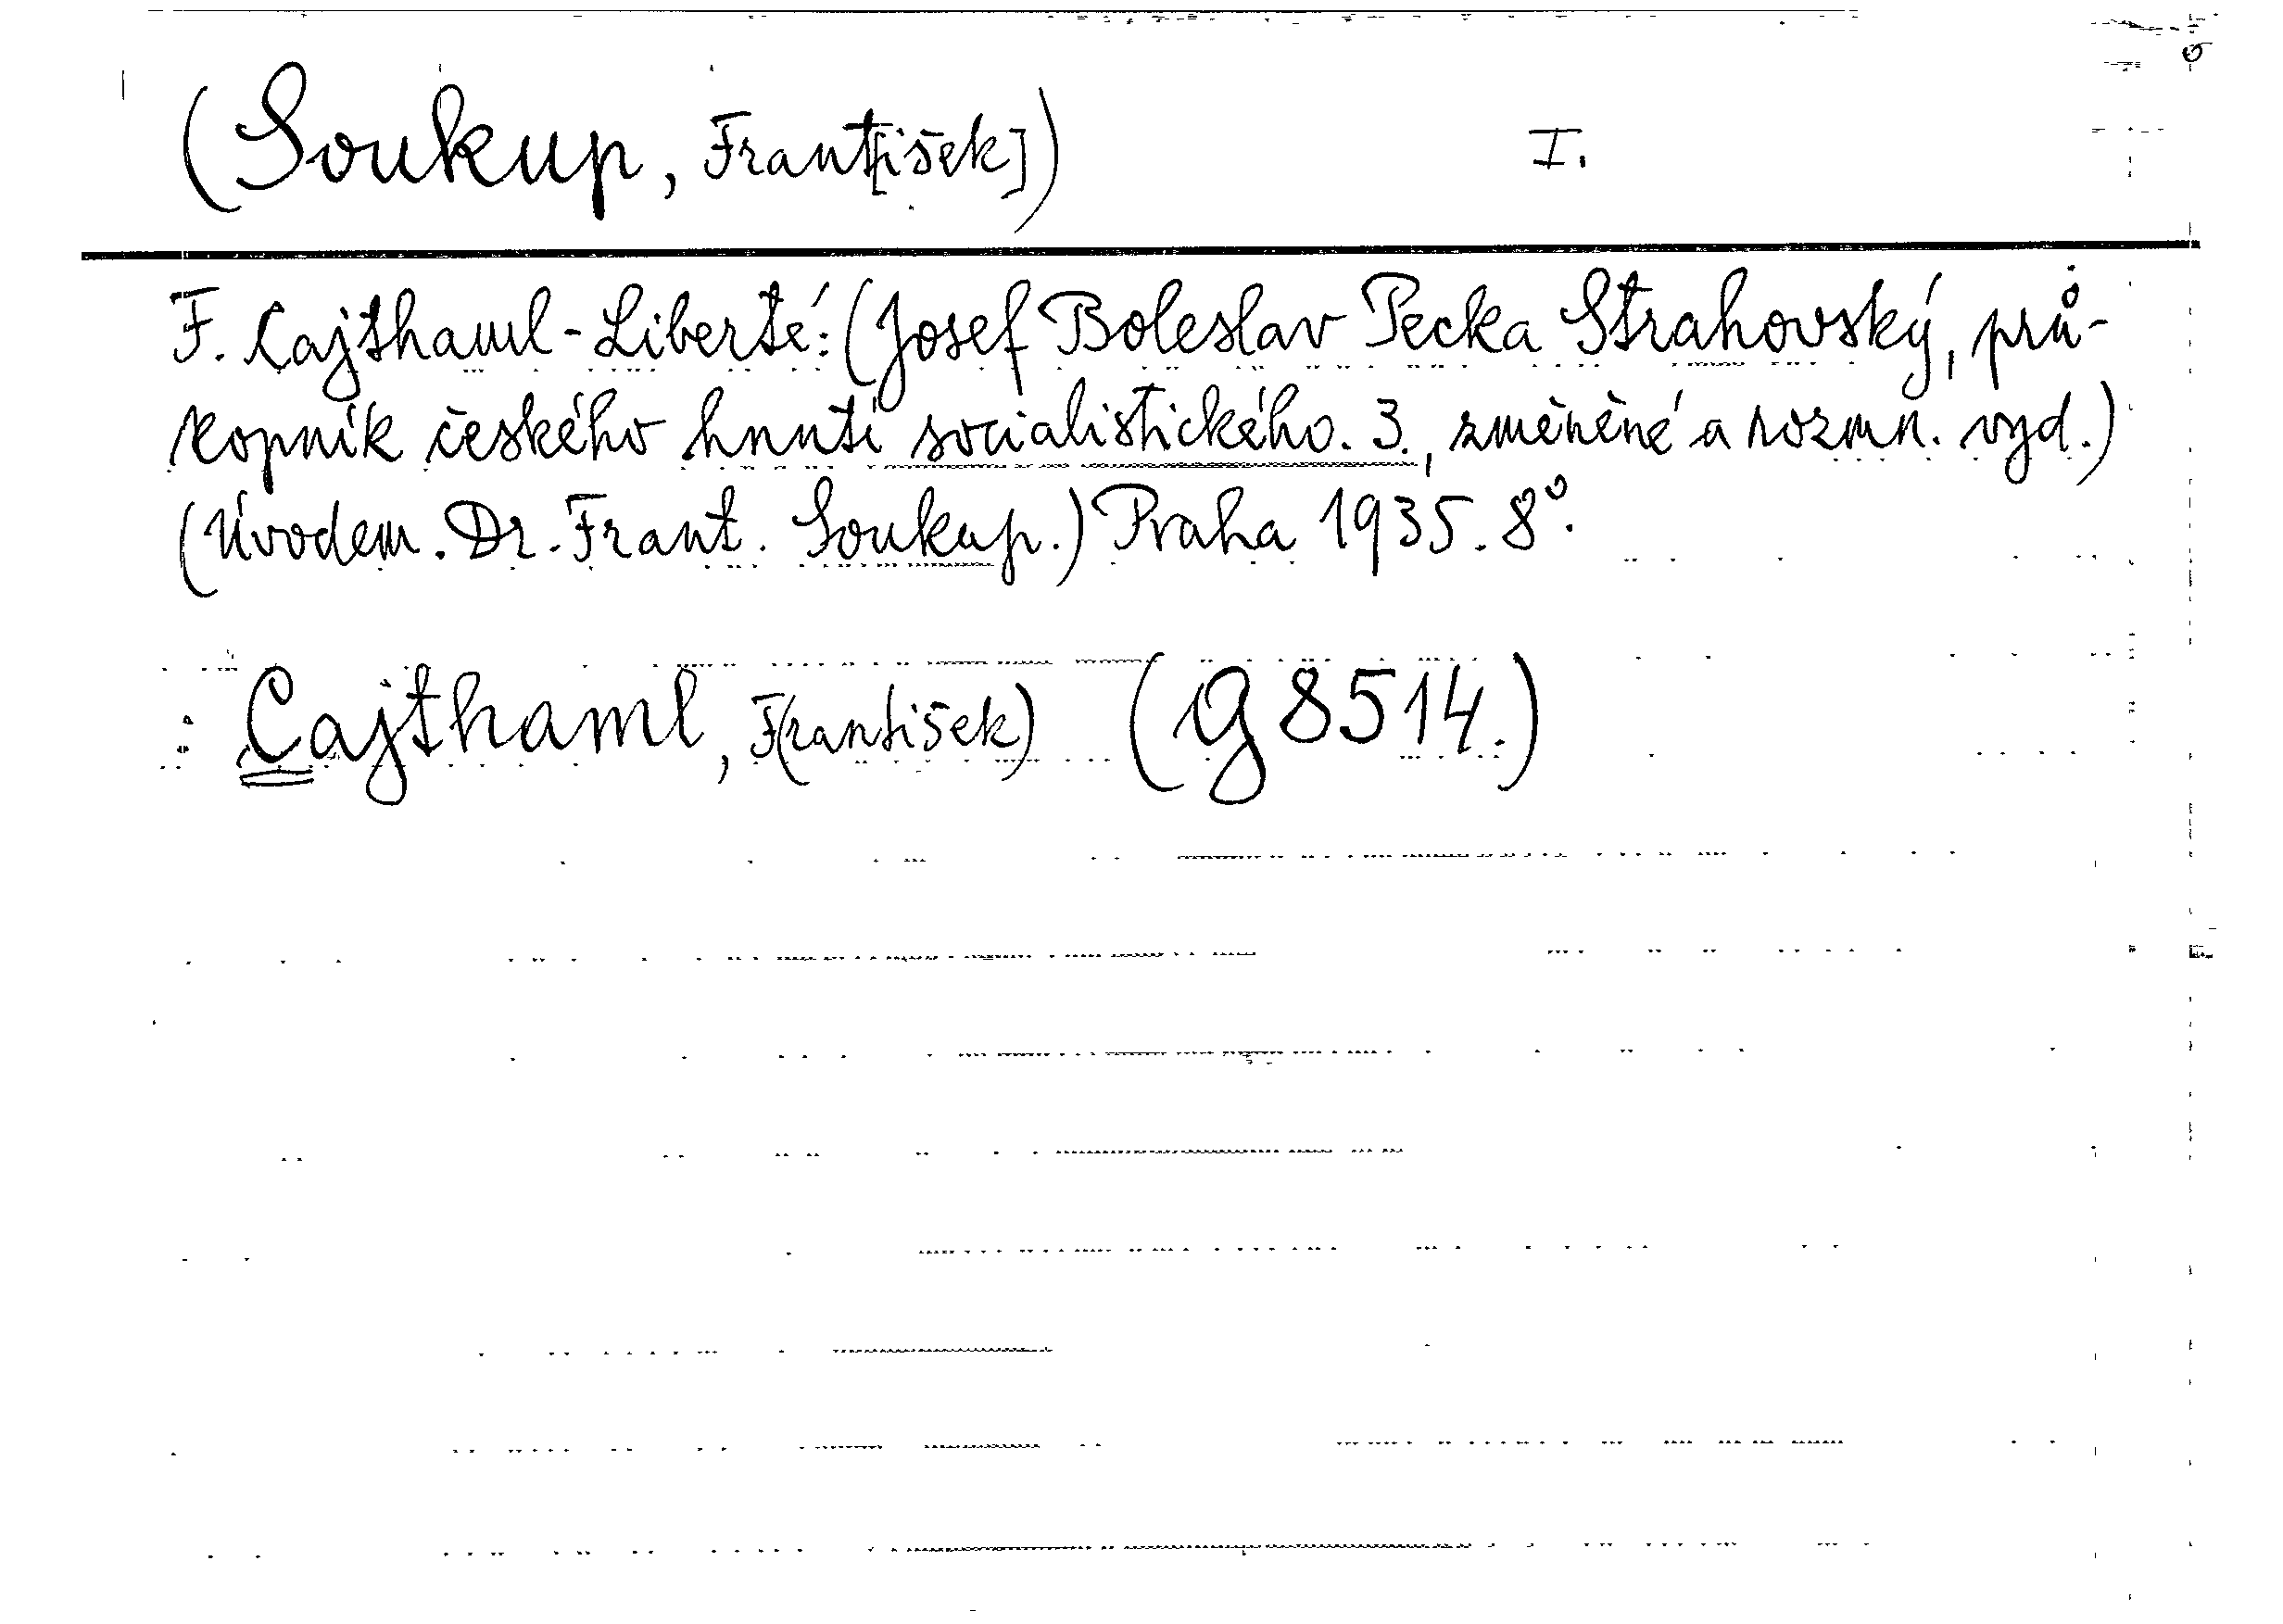 (Soukup, Frant[išek]) I.
F. Cajthaml-Liberté: (Josef Boleslav Pecka Strahovský, prů-
kopník českého hnutí socialistického. 3., změněné a rozmn. vyd.)
(Úvodem. Dr. Frant. Soukup.) Praha 1935. 8°.
Cajthaml, F(rantišek) (g 8514.)